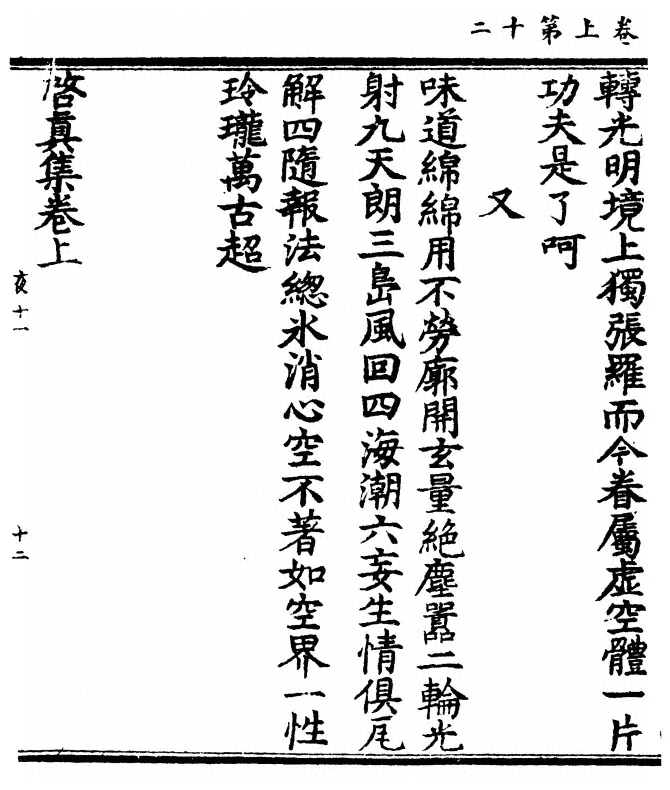 卷上第十二
轉光明境上獨張羅而今眷屬虛空體一片
功夫是了呵
又
味道綿綿用不勞廓開玄量絕塵囂二輪光
射九天朗三島風回四海潮六妄生情俱瓦
解四隨報法總氷消心空不著如空界一性
玲瓏萬古超
啓眞集卷上
夜十一
十二